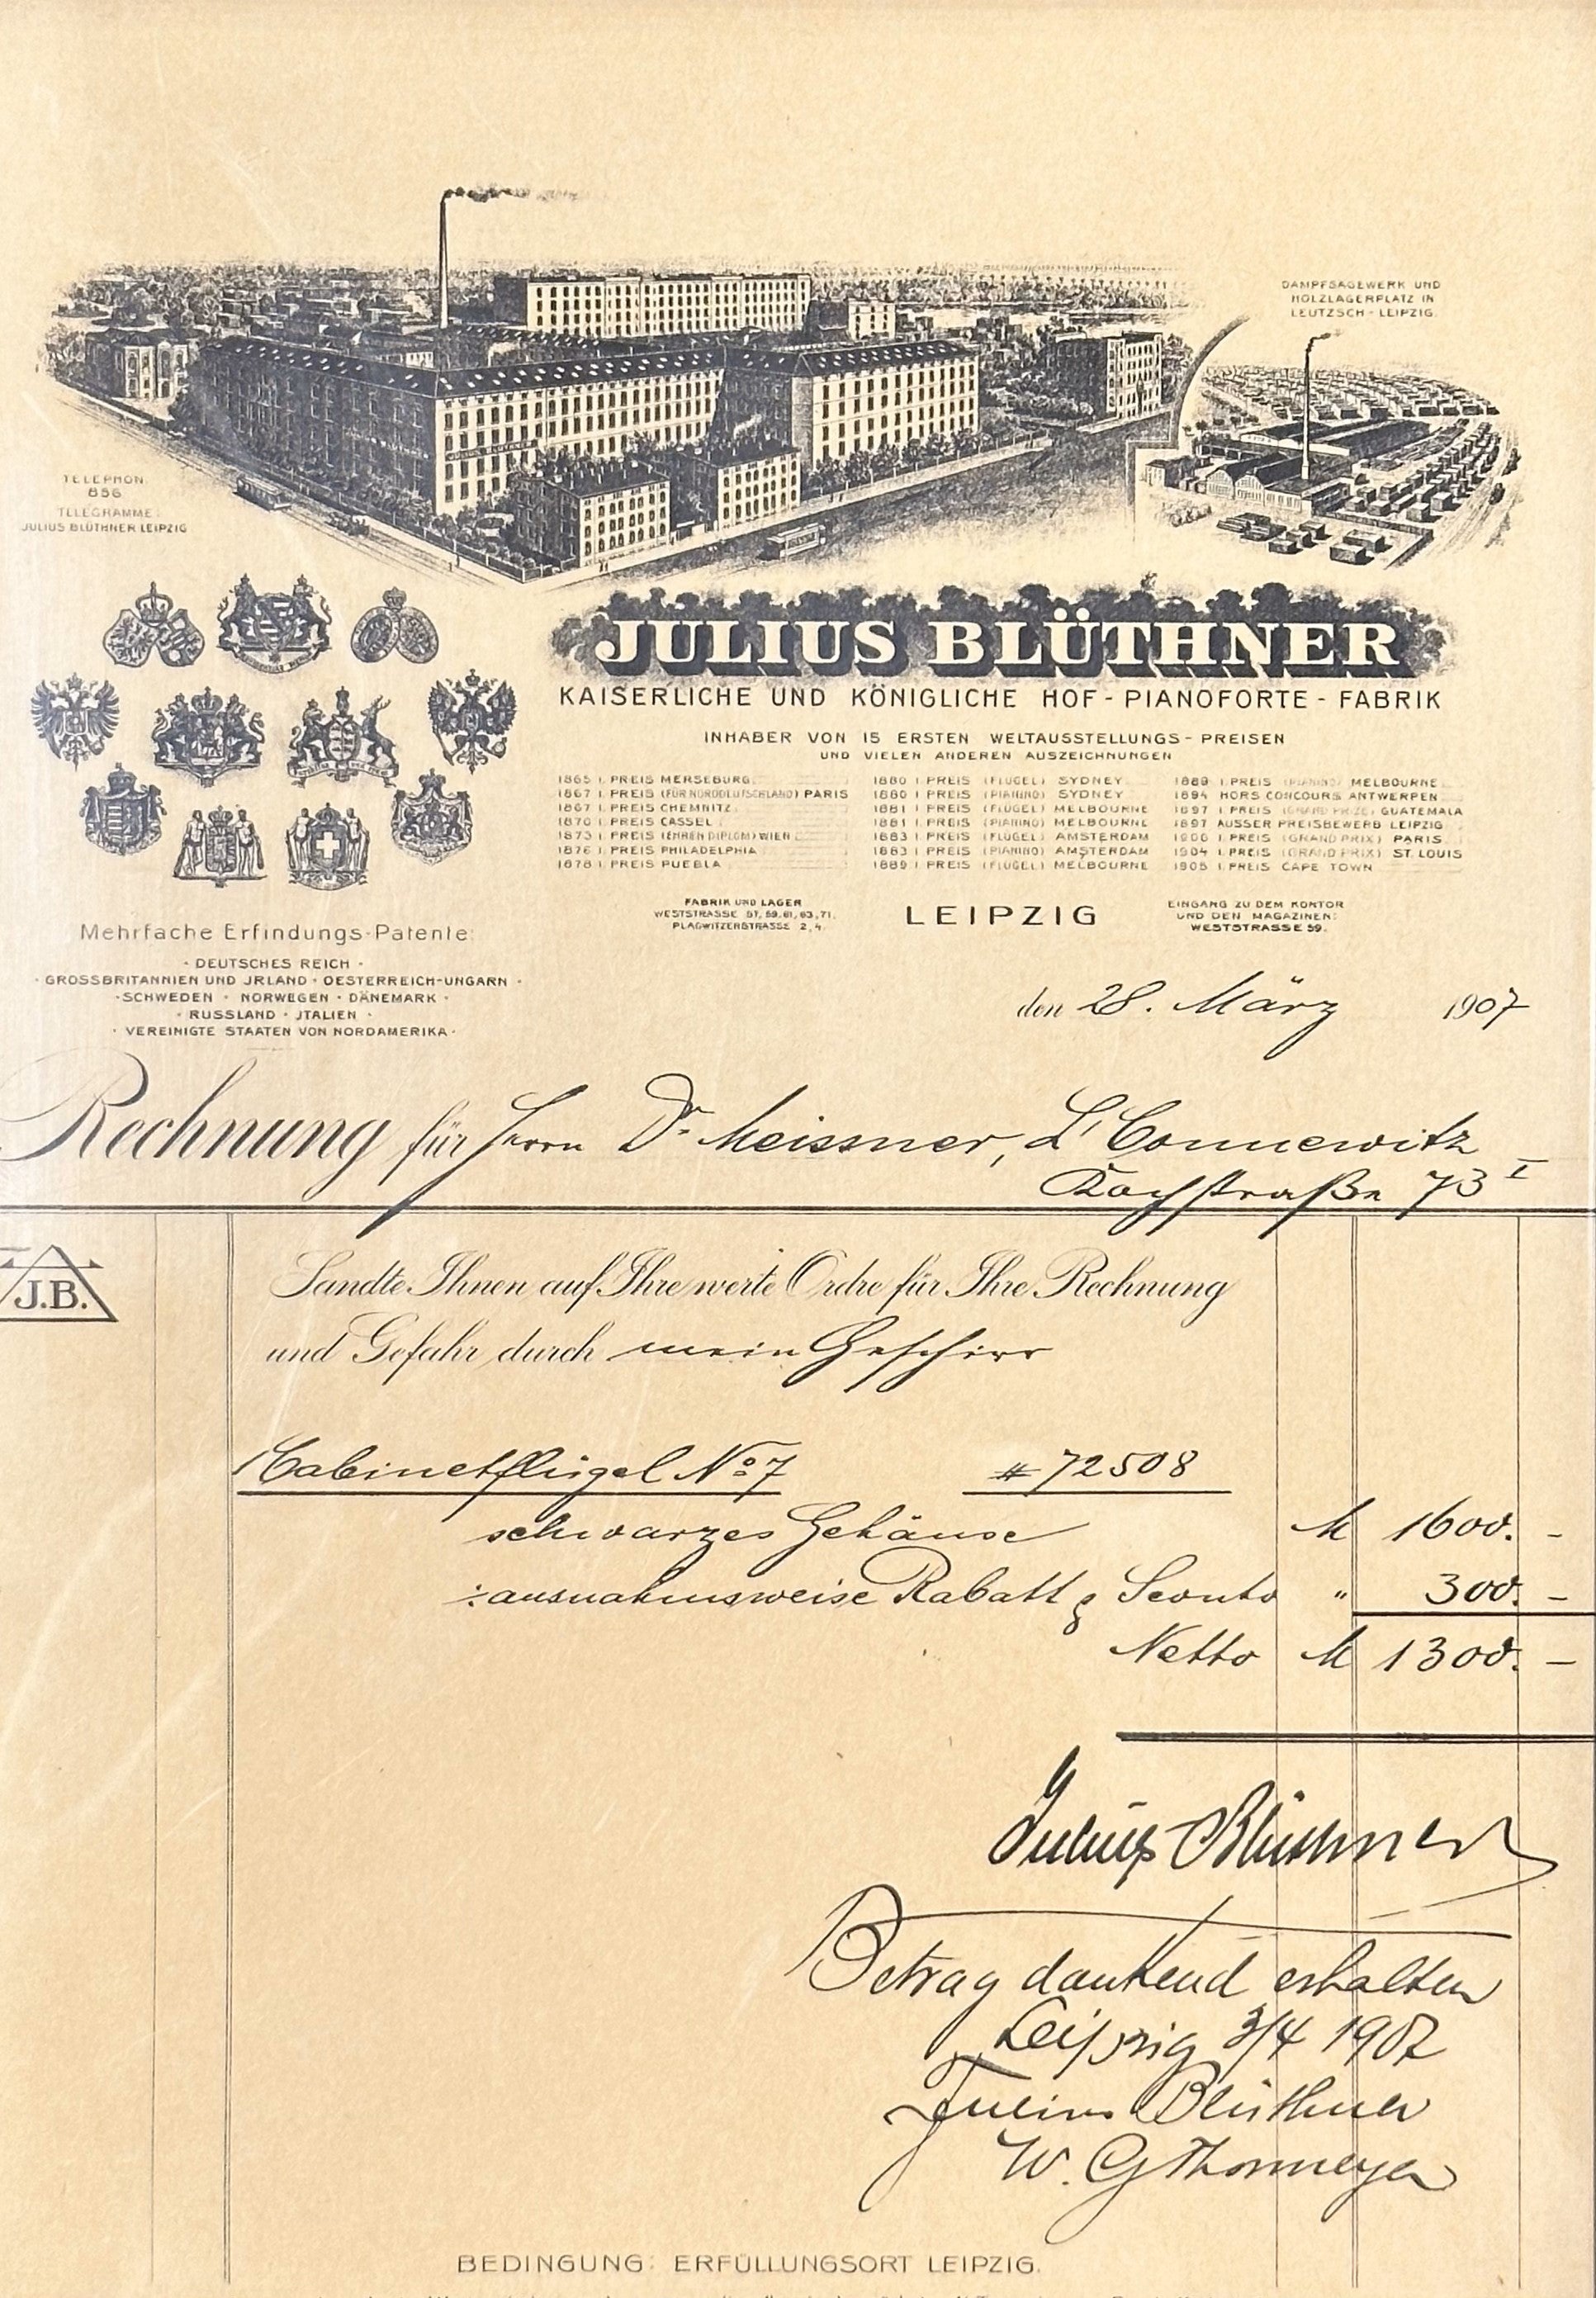 DAMPFSÄGEWERK UND
HOLZLAGERPLATZ IN
LEUTZSCH - LEIPZIG.
TELEPHON
856
TELEGRAMME:
JULIUS BLÜTHNER LEIPZIG
JULIUS BLÜTHNER
KAISERLICHE UND KÖNIGLICHE HOF - PIANOFORTE - FABRIK
INHABER VON 15 ERSTEN WELTAUSSTELLUNGS - PREISEN
UND VIELEN ANDEREN AUSZEICHNUNGEN
1865 I. PREIS MERSEBURG
1867 I. PREIS (FÜR NORDDEUTSCHLAND) PARIS
1867 I. PREIS CHEMNITZ
1870 I. PREIS CASSEL
1873 I. PREIS (EHREN DIPLOM) WIEN
1876 I. PREIS PHILADELPHIA
1878 I. PREIS PUEBLA
1880 I. PREIS (FLÜGEL) SYDNEY
1880 I. PREIS (PIANINO) SYDNEY
1881 I. PREIS (FLÜGEL) MELBOURNE
1881 I. PREIS (PIANINO) MELBOURNE
1883 I. PREIS (FLÜGEL) AMSTERDAM
1883 I. PREIS (PIANINO) AMSTERDAM
1889 I. PREIS (FLÜGEL) MELBOURNE
1889 I. PREIS (PIANINO) MELBOURNE
1894 HORS CONCOURS ANTWERPEN
1897 I. PREIS (GRAND PRIZE) GUATEMALA
1897 AUSSER PREISBEWERB LEIPZIG
1900 I. PREIS (GRAND PRIX) PARIS
1904 I. PREIS (GRAND PRIX) ST. LOUIS
1905 I. PREIS CAPE TOWN
FABRIK UND LAGER
WESTSTRASSE 57, 59, 61, 63, 71.
PLAGWITZERSTRASSE 2, 4.
LEIPZIG
EINGANG ZU DEM KONTOR
UND DEN MAGAZINEN:
WESTSTRASSE 59.
Mehrfache Erfindungs-Patente:
· DEUTSCHES REICH ·
· GROSSBRITANNIEN UND JRLAND · OESTERREICH-UNGARN ·
· SCHWEDEN · NORWEGEN · DÄNEMARK ·
· RUSSLAND · JTALIEN ·
· VEREINIGTE STAATEN VON NORDAMERIKA ·
den 28. März 1907
Rechnung für Herrn Dr. Meissner, L. Connewitz
Kochstraße 73 I
J.B.
Sandte Ihnen auf Ihre werte Ordre für Ihre Rechnung
und Gefahr durch mein Geschirr
Cabinetflügel No 7 # 72508
schwarzes Gehäuse M 1600. –
:ausnahmsweise Rabatt & Sconto " 300. –
Netto M 1300. –
Julius Blüthner
Betrag dankend erhalten
Leipzig 3/4 1907
Julius Blüthner
BEDINGUNG: ERFÜLLUNGSORT LEIPZIG.